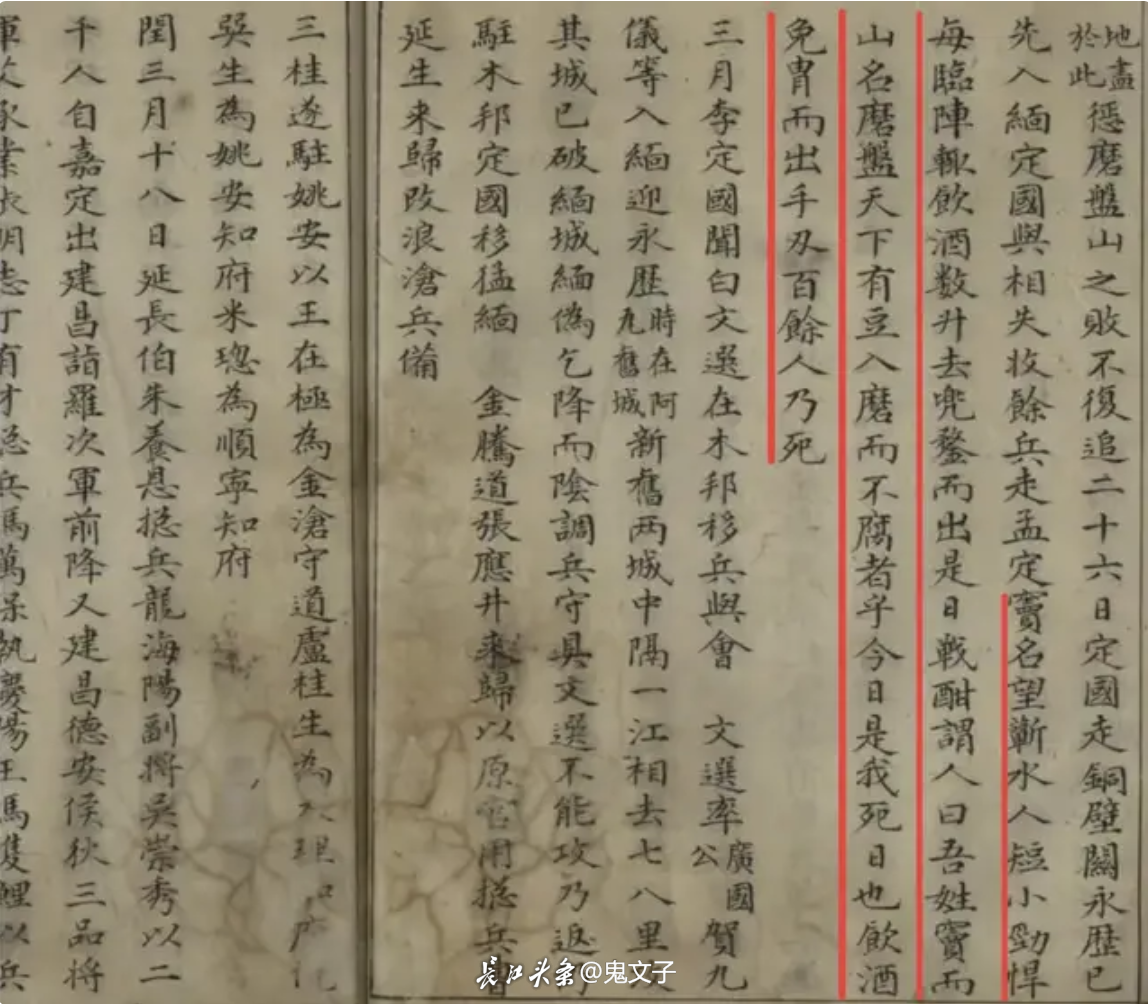 地盡於此懲磨盤山之敗不復追二十六日定國走銅壁關永歴已
先入緬定國與相失收餘兵走孟定竇名望蘄水人短小勁悍
每臨陣輙飲酒数升去兜鍪而出是日戰酣謂人曰吾姓竇而
山名磨盤天下有豆入磨而不腐者乎今日是我死日也飲酒
免胄而出手刃百餘人乃死
三月李定國聞白文選在木邦移兵與會 文選率廣國公賀九
儀等入緬迎永歴時在阿九舊城新舊两城中隔一江相去七八里
其城已破緬城緬偽乞降而陰調兵守具文選不能攻乃返
駐木邦定國移猛緬 金騰道張應井來歸以原官用摠兵
延生来歸改浪滄兵備
三桂遂駐姚安以王在極為金滄守道盧桂生為大理
巽生為姚安知府米璁為順寧知府
閏三月十八日延長伯朱養恩摠兵龍海陽副將吴崇秀以二
千人自嘉定出建昌詣羅次軍前降又建昌德安侯狄三品將
長江头条@鬼文子